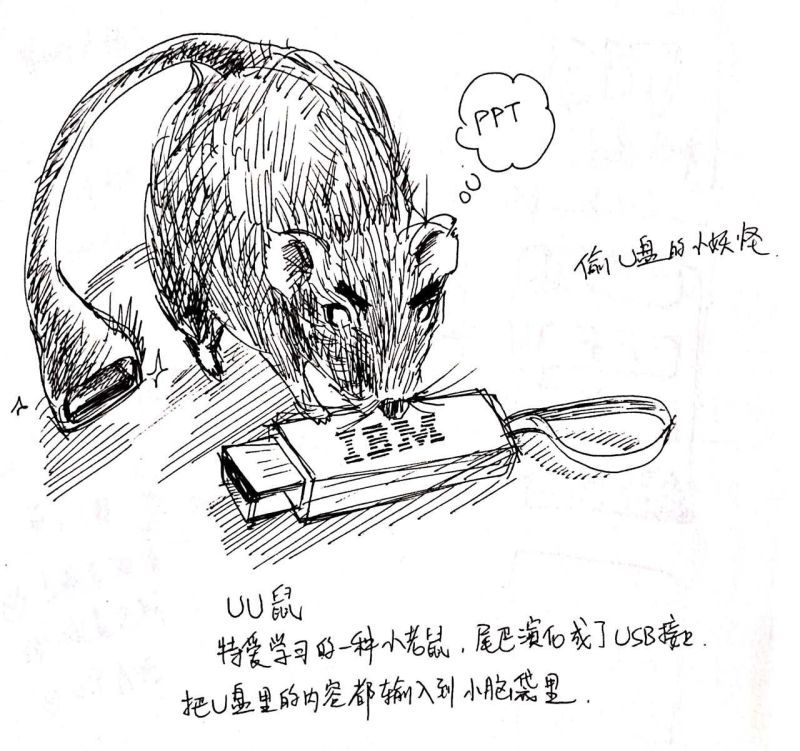 PPT
偷U盘的小妖怪.
IBM
UU鼠
特爱学习的一种小老鼠,尾巴演化成了USB接口.
把U盘里的内容都输入到小脑袋里.